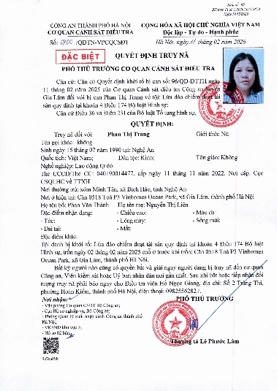 CÔNG AN THÀNH PHỐ HÀ NỘI
CƠ QUAN CẢNH SÁT ĐIỀU TRA
CỘNG HÒA XÃ HỘI CHỦ NGHĨA VIỆT NAM
Độc lập - Tự do - Hạnh phúc
/QĐTN-VPCQCSĐT
Hà Nội, ngày 11 tháng 02 năm 2025
ĐẶC BIỆT
QUYẾT ĐỊNH TRUY NÃ
PHÓ THỦ TRƯỞNG CƠ QUAN CẢNH SÁT ĐIỀU TRA
Căn cứ Quyết định khởi tố bị can số 96/QĐ-ĐTTH
11 tháng 02 năm 2025 của Cơ quan cảnh sát điều tra Công an huyện
Gia Lâm đối với bị can Phan Thị Trang về tội Lừa đảo chiếm đoạt tài sản
quy định tại khoản 4 Điều 174 Bộ luật Hình sự;
Căn cứ Điều 36 và Điều 231 của Bộ luật Tố tụng Hình sự,
QUYẾT ĐỊNH:
Truy nã đối với: Phan Thị Trang Giới tính: Nữ
Tên gọi khác: không
Sinh ngày 15 tháng 02 năm 1990 tại: Nghệ An
Quốc tịch: Việt Nam; Dân tộc: Kinh; Tôn giáo: Không
Nghề nghiệp: Lao động tự do
Thẻ CCCD/Thẻ CC: 040190014477, cấp ngày 11 tháng 11 năm 2022. Nơi cấp: Cục
CSQLHC về TTXH
Nơi thường trú: xóm Minh Tân, xã Bích Hào, tỉnh Nghệ An
Nơi ở hiện tại: Căn 0518 Toà P3 Vinhomes Ocean Park, xã Gia Lâm, thành phố Hà Nội
Họ tên bố: Phan Văn Thành Họ tên mẹ: Nguyễn Thị Liên
Đặc điểm nhận dạng: - Chiều cao: - Màu da:
- Tóc: - Lông mày: - Sống mũi:
- Dái tai: - Mắt:
Đặc điểm khác:
Tội danh bị khởi tố: Lừa đảo chiếm đoạt tài sản quy định tại khoản 4 Điều 174 Bộ luật
Ocean Park, xã Gia Lâm, thành phố Hà Nội.
Bất kỳ người nào cũng có quyền bắt và giải ngay người đang bị truy nã đến cơ quan
Công an, Viện kiểm sát hoặc Uỷ ban nhân dân nơi gần nhất. Sau khi bắt hoặc tiếp nhận đối
tượng truy nã phải báo ngay cho Điều tra viên Hồ Ngọc Giang, địa chỉ: Số 2 Tràng Thi,
phường Hoàn Kiếm, thành phố Hà Nội, điện thoại: 0982556282./.
Nơi nhận:
PHÓ THỦ TRƯỞNG
Thượng tá Lê Phước Lâm